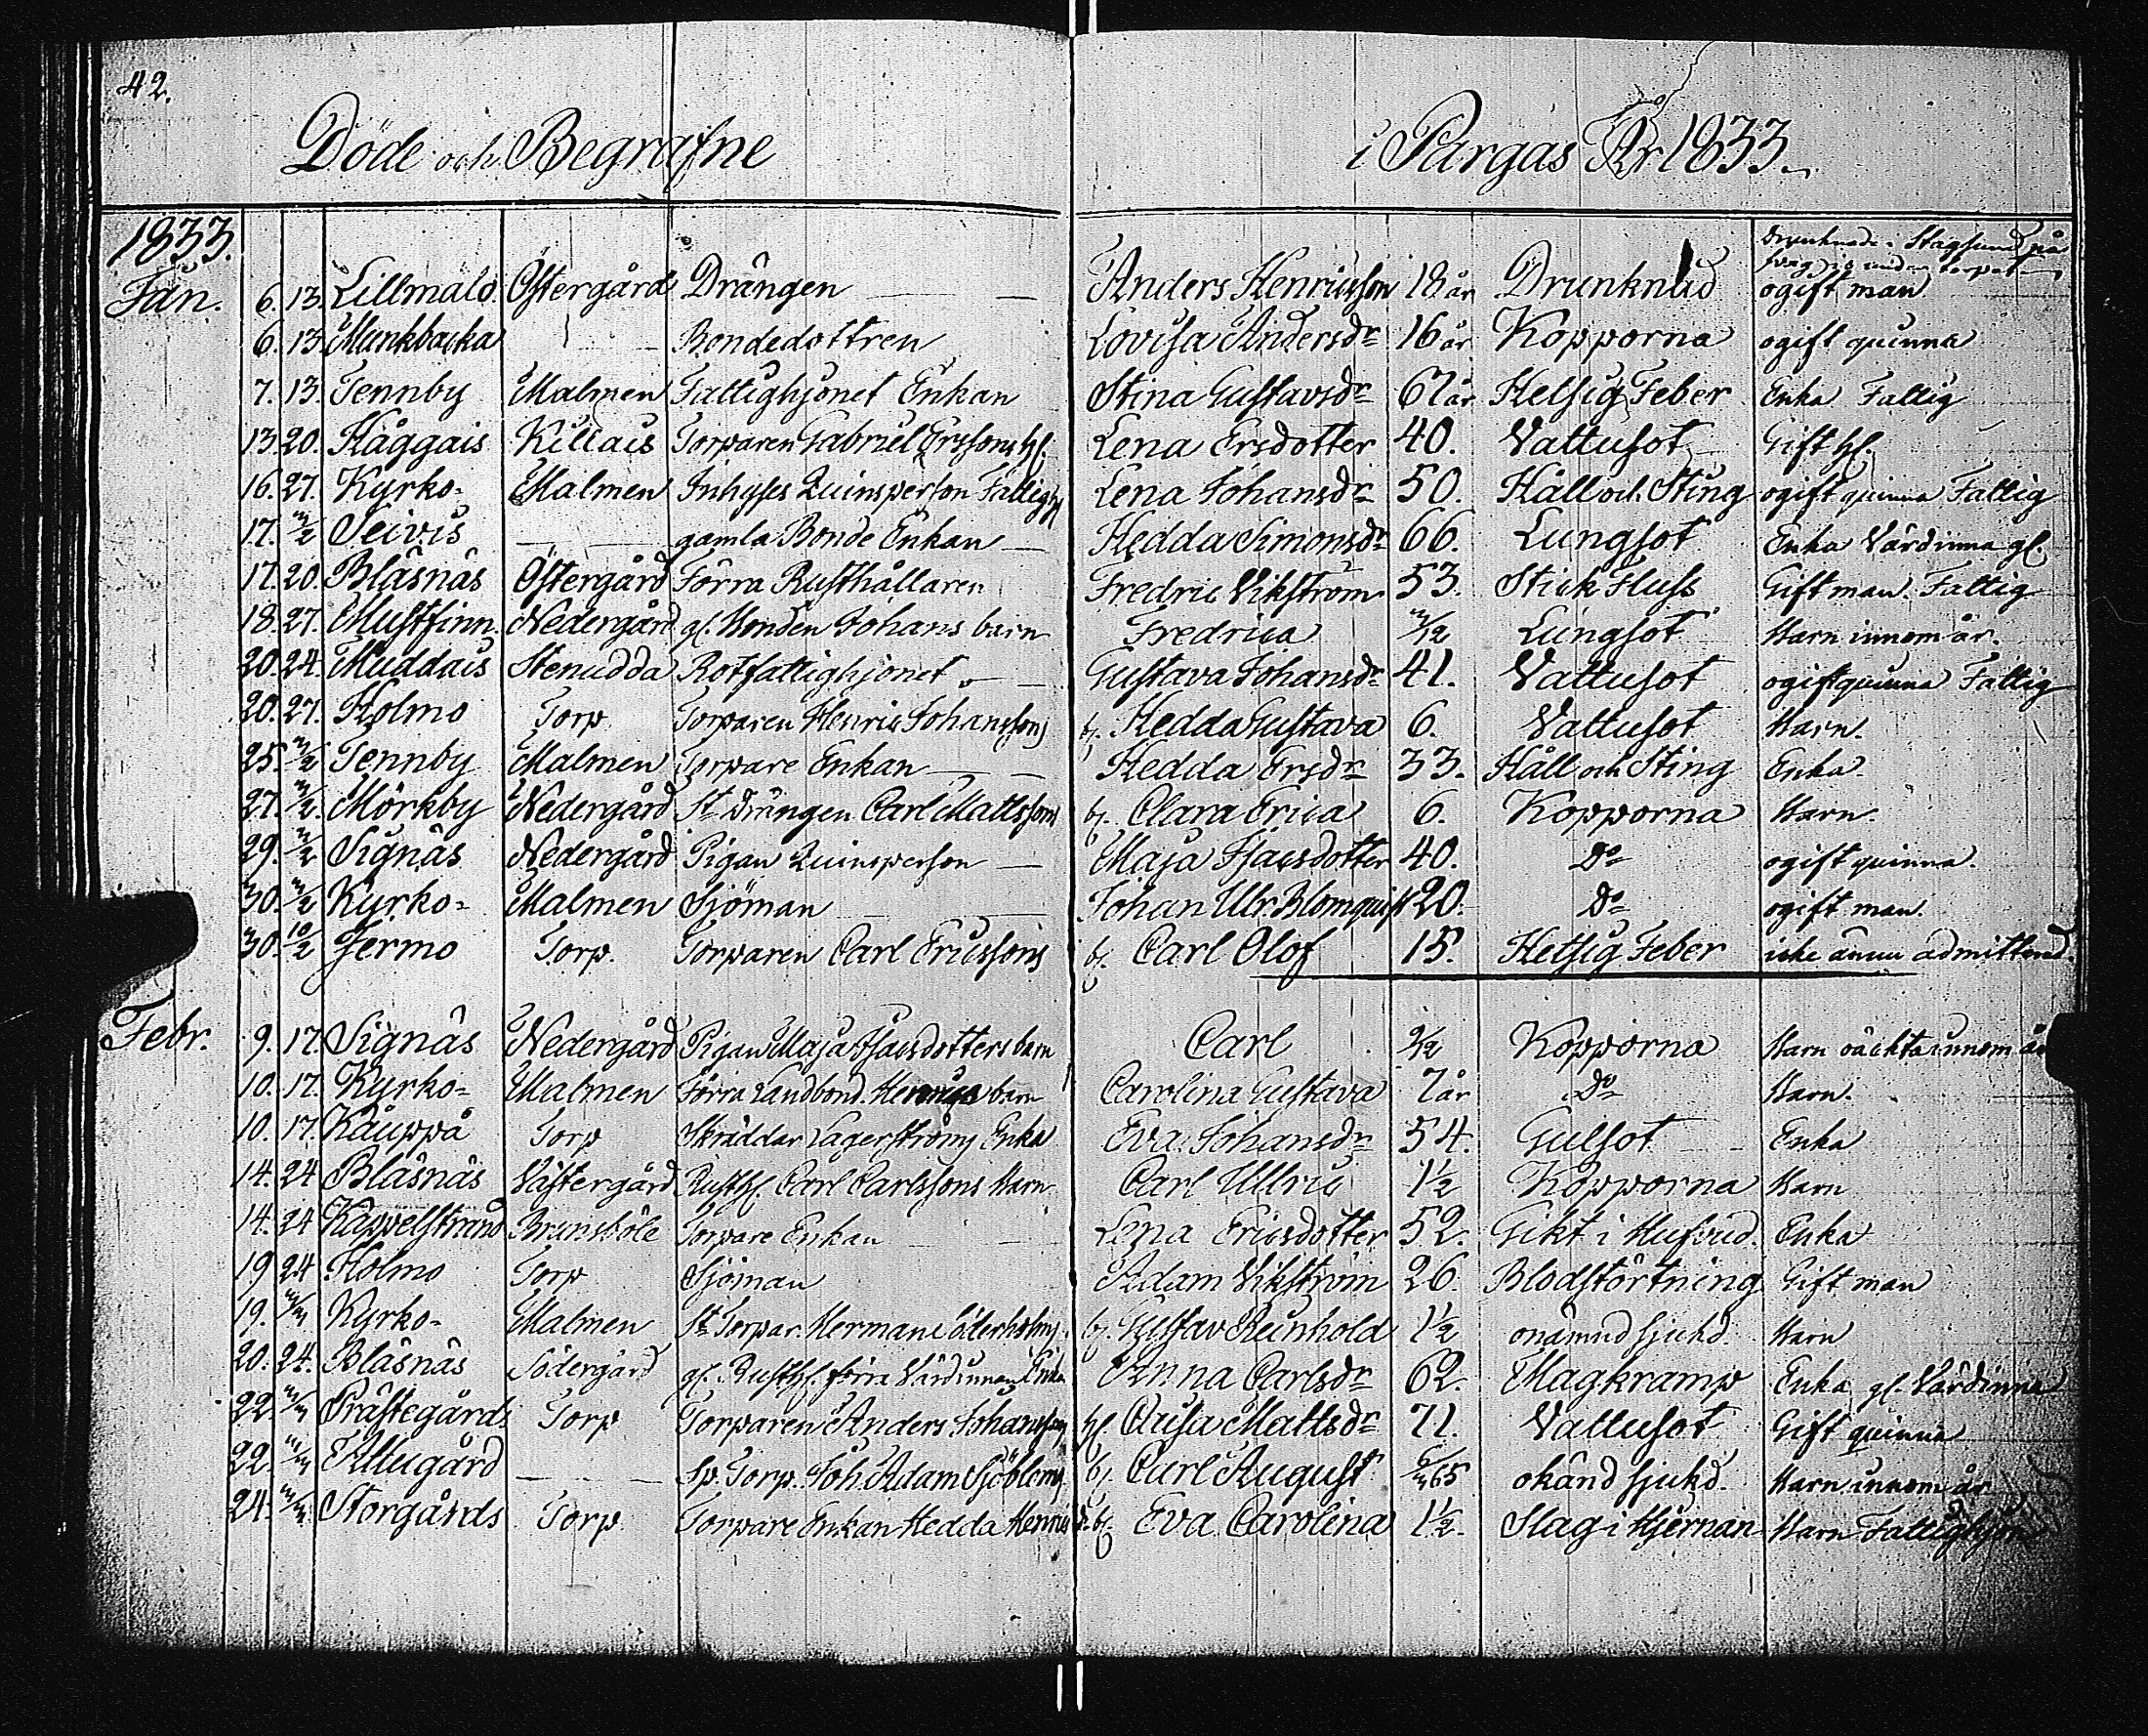 42.
Döde och Begrafne i Pargas År 1833.
1833.
drunknade i Stagsund på
svag is under
Jan. 6. 13. Lillmälö. Östergård Drängen Anders Henricsson 18 år Drunknad ogift man
6. 13. Munkbacka Bondedottren Lovisa Andersdr 16 år Kopporna ogift quinna
7. 13. Tennby Malmen Fattighjonet Enkan Stina Gustavsdr 67 år Hetsig Feber Enka Fattig
13. 20. Häggais Killais Torparen Gabriel Ersons hf. Lena Ersdotter 40. Vattusot Gift hf.
16. 27. Kyrko- Malmen Inhyses Quinsperson Fattighj Lena Johansdr 50. Håll och Sting ogift quinna Fattig
17. 3/2 Seivis gamla Bonde Enkan Hedda Simonsdr 66. Lungsot Enka Värdinna gl.
17. 20. Bläsnäs Östergård Förra Rusthållaren Fredric Vikström 53. Stick Fluss Gift man. Fattig
18. 27. Mustfinn. Nedergård gl. Bonden Johans barn Fredrica 2/12 Lungsot Barn innom år.
20. 24. Muddais Stenudda Rotfattighjonet Gustava Johansdr 41. Vattusot ogift quinna Fattig
20. 27. Holmo Torp Torparen Henric Johanssons b. Hedda Gustava 6. Vattusot Barn.
25. 3/2 Tennby Malmen Torpare Enkan Hedda Ersdr 33. Håll och Sting Enka
27. 3/2. Mörkby Nedergård St Drängen Carl Mattssons b. Clara Erica 6. Kopporna Barn.
29. 3/2 Signäs Nedergård Pigan Quinsperson Maja Isacsdotter 40. Do ogift quinna.
30. 3/2 Kyrko- Malmen Sjöman Johan Ulr. Blomquist 20. Do ogift man.
30. 10/2 Jermo Torp. Torparen Carl Ericssons b. Carl Olof 15. Hetsig Feber icke ännu admitterad.
Febr. 9. 17. Signäs Nedergård Pigan Maja Isacsdotters barn Carl 2/12 Kopporna Barn oäckta innom år
10. 17. Kyrko- Malmen Förra Landbond. barn Carolina Gustava 7 år Do Barn.
10. 17. Kauppå Torp Skräddar Lagerströms Enka Eva Johansdr 54. Gulsot Enka
14. 24 Bläsnäs Västergård Rusthf. Carl Carlssons Barn Carl Ullric 1½ Kopporna Barn
14. 24 Kappelstrand Brunsböle Torpare Enkan Lena Ericsdotter 52. Gikt i Hufvud. Enka
19 24 Holmo Torp Sjöman Adam Vikström 26. Blodstörtning Gift man
19. 3/3 Kyrko- Malmen St Torpar. Herman Söderholms b. Gustav Reinhold 1½ onämnd sjukd. Barn
20. 24. Bläsnäs Södergård gl. Rusthf. förra Värdinnan Enka Anna Carlsdr 62. Magkramp Enka gl. Värdinna
22. 3/3 Prästegårds Torp Torparen Anders Johanssons hf. Caisa Mattsdr 71. Vattusot Gift quinna
22. 3/3 Attugård Sp. Torp. Joh. Adam Sjöbloms b. Carl August okänd sjukd. Barn innom år
24. 3/3. Storgårds Torp Torpare Enkan Hedda Henricsdr. b. Eva Carolina 1½. Slag i Hjernan Barn Fattighjon